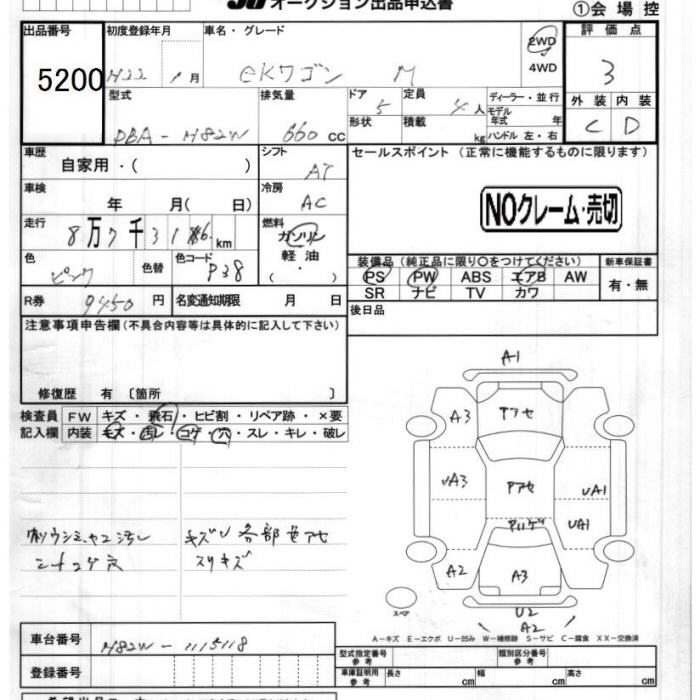 オークション出品申込書
①会場控
出品番号 初度登録年月 車名・グレード 評価点
5200 H22 1月 eKワゴン M 2WD 4WD 3
型式 排気量 ドア 定員 ディーラー・並行 外装 内装
DBA-H82W 660cc 5 4人 モデル年式 年 C D
形状 積載 kg ハンドル 左・右
車歴 自家用・( ) シフト AT セールスポイント (正常に機能するものに限ります)
車検 年 月( 日) 冷房 AC NOクレーム・売切
走行 8万7千31 6km 燃料 ガソリン 軽油 ・ ( )
色 ピンク 色替 色コード P38
装備品 (純正品に限り〇をつけてください) 新車保証書
PS PW ABS エアB AW 有・無
SR ナビ TV カワ
R券 9450円 名変通知期限 月 日 後日品
注意事項申告欄(不具合内容等は具体的に記入して下さい)
修復歴 有 〔箇所 〕
検査員 FW キズ・飛石・ヒビ割・リペア跡・×要
記入欄 内装 キズ・汚レ・コゲ・穴・スレ・キレ・破レ
キズU各部色アセ
スリキズ
A1
A3 アセ
UA3 アセ UA1
UA1
A2 A3
U2
A2
スペア
A-キズ E-エクボ U-凹み W-補修跡 S-サビ C-腐食 XX-交換済
車台番号 H82W-1115118
登録番号
型式指定番号 参考 類別区分番号 参考
車庫証明用 参考 長さ cm 幅 cm 高さ cm